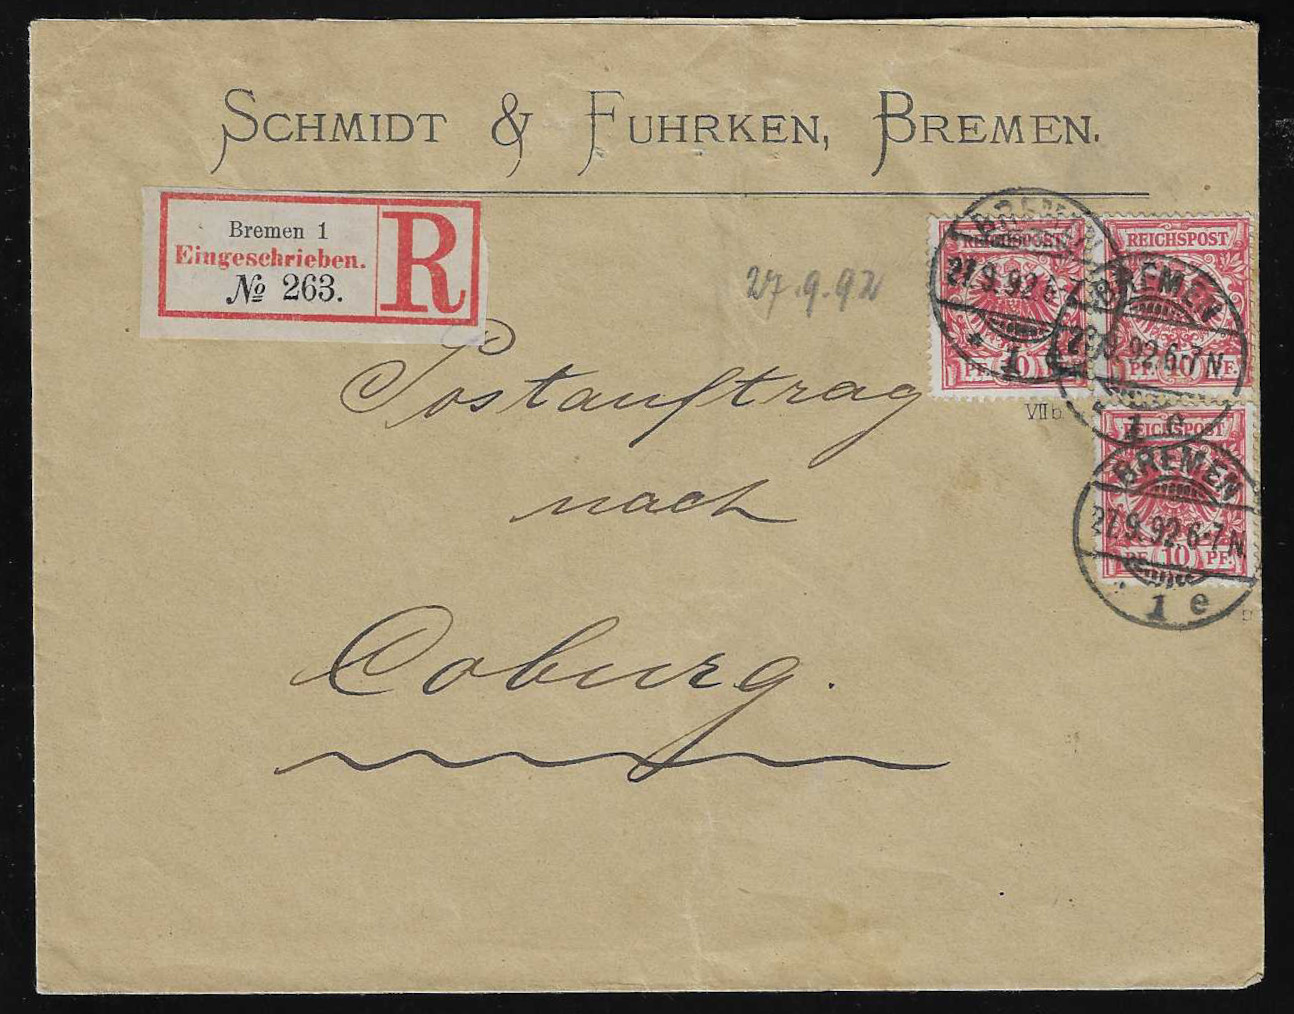 SCHMIDT & FUHRKEN, BREMEN.
Bremen 1
Eingeschrieben.
№ 263.
R
27.9.92
REICHSPOST
10 PF.
BREMEN
27.9.92.6-7N.
1 e
REICHSPOST
PF. 10 PF.
BREMEN
27.9.92.6-7N.
1 e
REICHSPOST
PF. 10 PF.
BREMEN
27.9.92.6-7N.
1 e
VII b
Postauftrag
nach
Coburg.